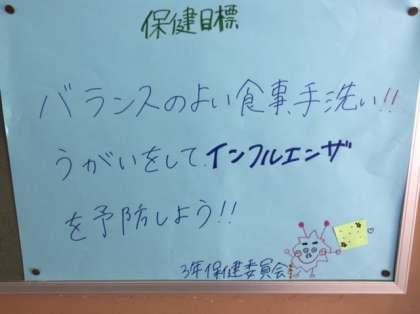 保健目標
バランスのよい食事、手洗い!!
うがいをして、インフルエンザ
を予防しよう!!
3年保健委員会